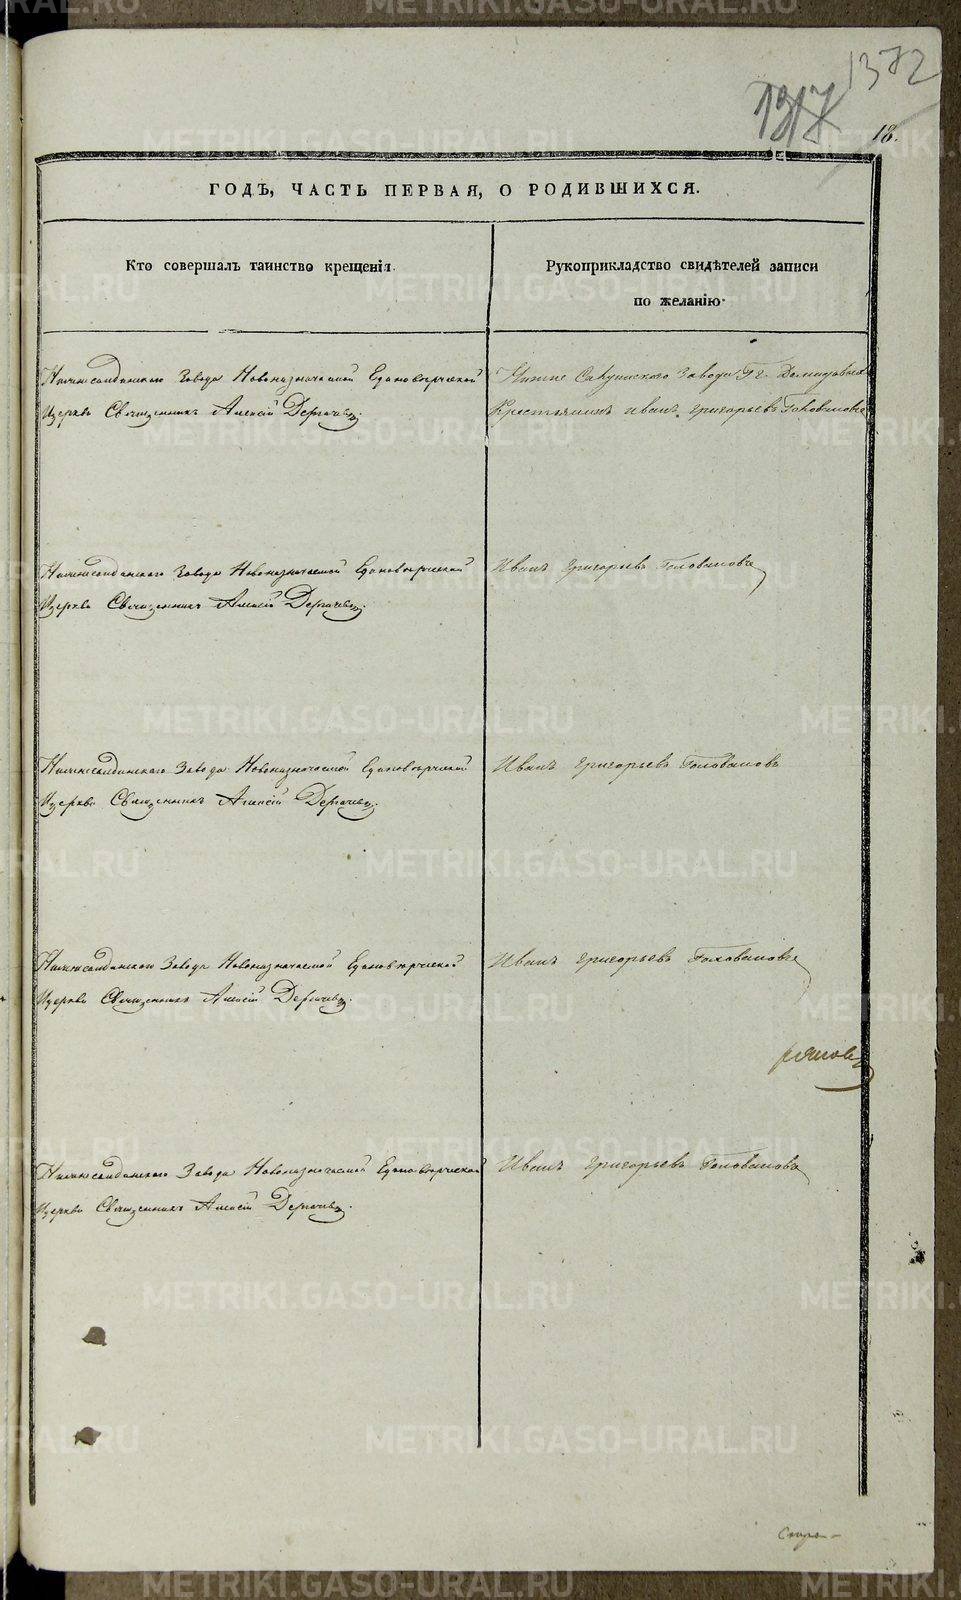 1372
1317
18.
ГОДЪ, ЧАСТЬ ПЕРВАЯ, О РОДИВШИХСЯ.
Кто совершалъ таинство крещенія.
Рукоприкладство свидѣтелей записи
по желанію.
Нижнесалдинскаго Завода Новоназначаемой Единоверческой
Церкви Священникъ Алексій Дерпачевъ.
Нижне Салдинскаго Завода Гг. Демидовыхъ
Крестьянинъ Иванъ Григорьевъ Головановъ
Нижнесалдинскаго Завода Новоназначаемой Единоверческой
Церкви Священникъ Алексій Дерпачевъ.
Иванъ Григорьевъ Головановъ
Нижнесалдинскаго Завода Новоназначаемой Единоверческой
Церкви Священникъ Алексій Дерпачевъ.
Иванъ Григорьевъ Головановъ
Нижнесалдинскаго Завода Новоназначаемой Единоверческой
Церкви Священникъ Алексій Дерпачевъ.
Иванъ Григорьевъ Головановъ
Нижнесалдинскаго Завода Новоназначаемой Единоверческой
Церкви Священникъ Алексій Дерпачевъ.
Иванъ Григорьевъ Головановъ
METRIKI.GASO-URAL.RU